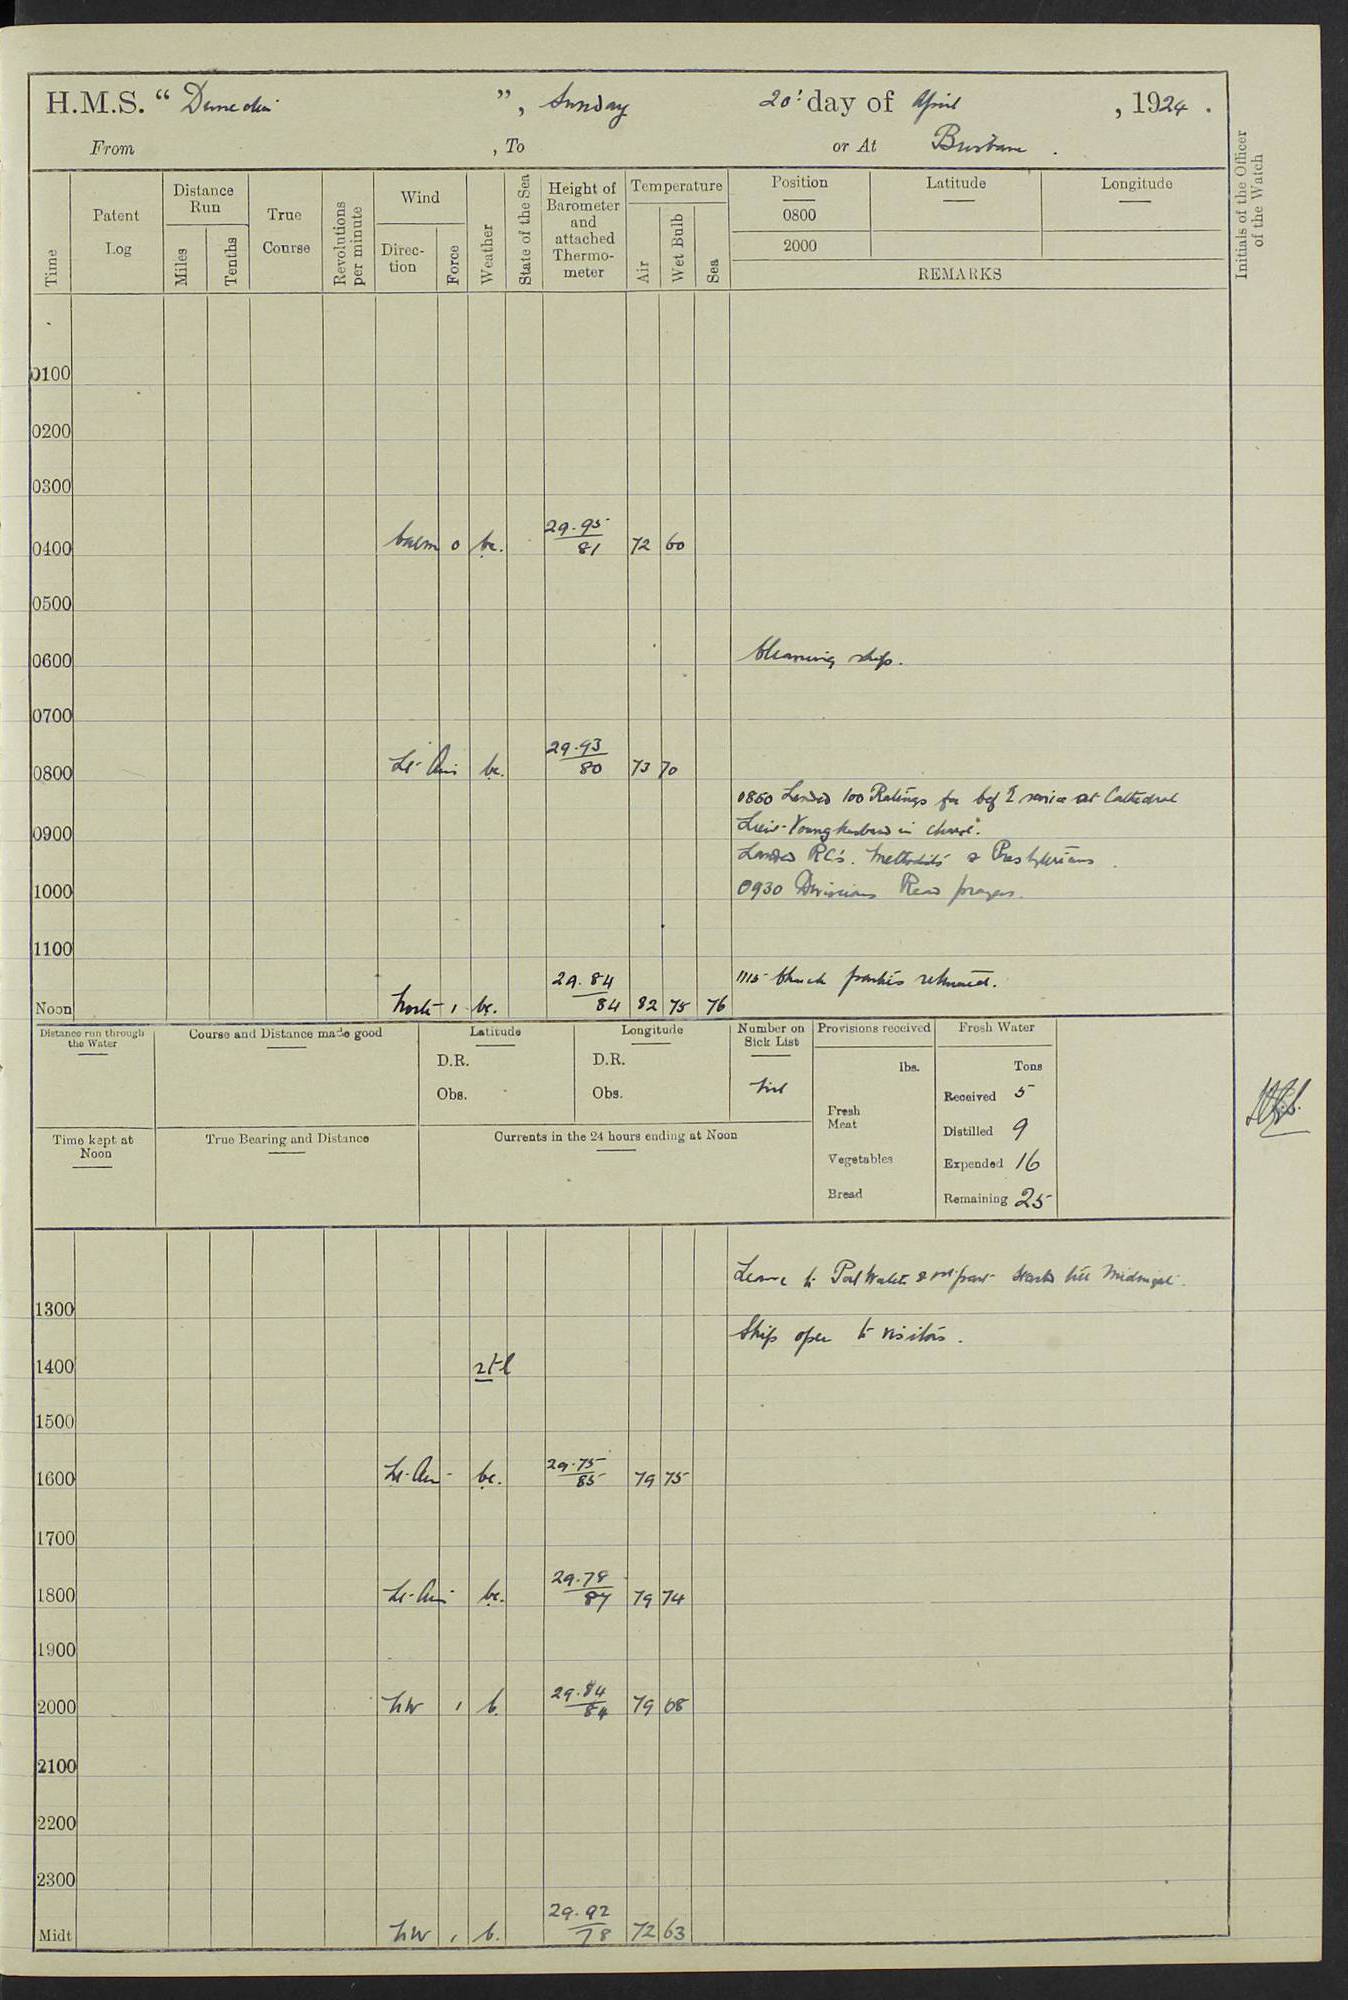 H.M.S. “ Dunedin ”, Sunday 20th day of April , 1924 .
From , To or At Brisbane .
Time
Patent Log
Distance Run
Miles
Tenths
True Course
Revolutions per minute
Wind
Direction
Force
Weather
State of the Sea
Height of Barometer and attached Thermometer
Temperature
Air
Wet Bulb
Sea
Position Latitude Longitude
0800
2000
REMARKS
Initials of the Officer of the Watch
0100
0200
0300
0400 Calm 0 bc. 29.95 / 81 72 60
0500
0600 Cleaning ship.
0700
0800 Lt Airs bc. 29.93 / 80 73 70
0850 Landed 100 Ratings for C of E service at Cathedral
0900 Lieut Younghusband in charge.
Landed RC's. Methodists & Presbyterians.
1000 0930 Divisions Read prayers.
1100
1115 Church parties returned.
Noon North 1 bc. 29.84 / 84 82 75 76
Distance run through the Water
Course and Distance made good
Latitude
D.R.
Obs.
Longitude
D.R.
Obs.
Number on Sick List
Nil
Provisions received
lbs.
Fresh Meat
Vegetables
Bread
Fresh Water
Tons
Received 5
Distilled 9
Expended 16
Remaining 25
Time kept at Noon
True Bearing and Distance
Currents in the 24 hours ending at Noon
Leave to Port Watch & part Starbd till Midnight.
1300
Ship open to visitors.
1400 rtl
1500
1600 Lt. Air - bc. 29.75 / 85 79 75
1700
1800 Lt. Air bc. 29.78 / 87 79 74
1900
2000 NW 1 b. 29.84 / 84 79 68
2100
2200
2300
Midt NW 1 b. 29.92 / 78 72 63